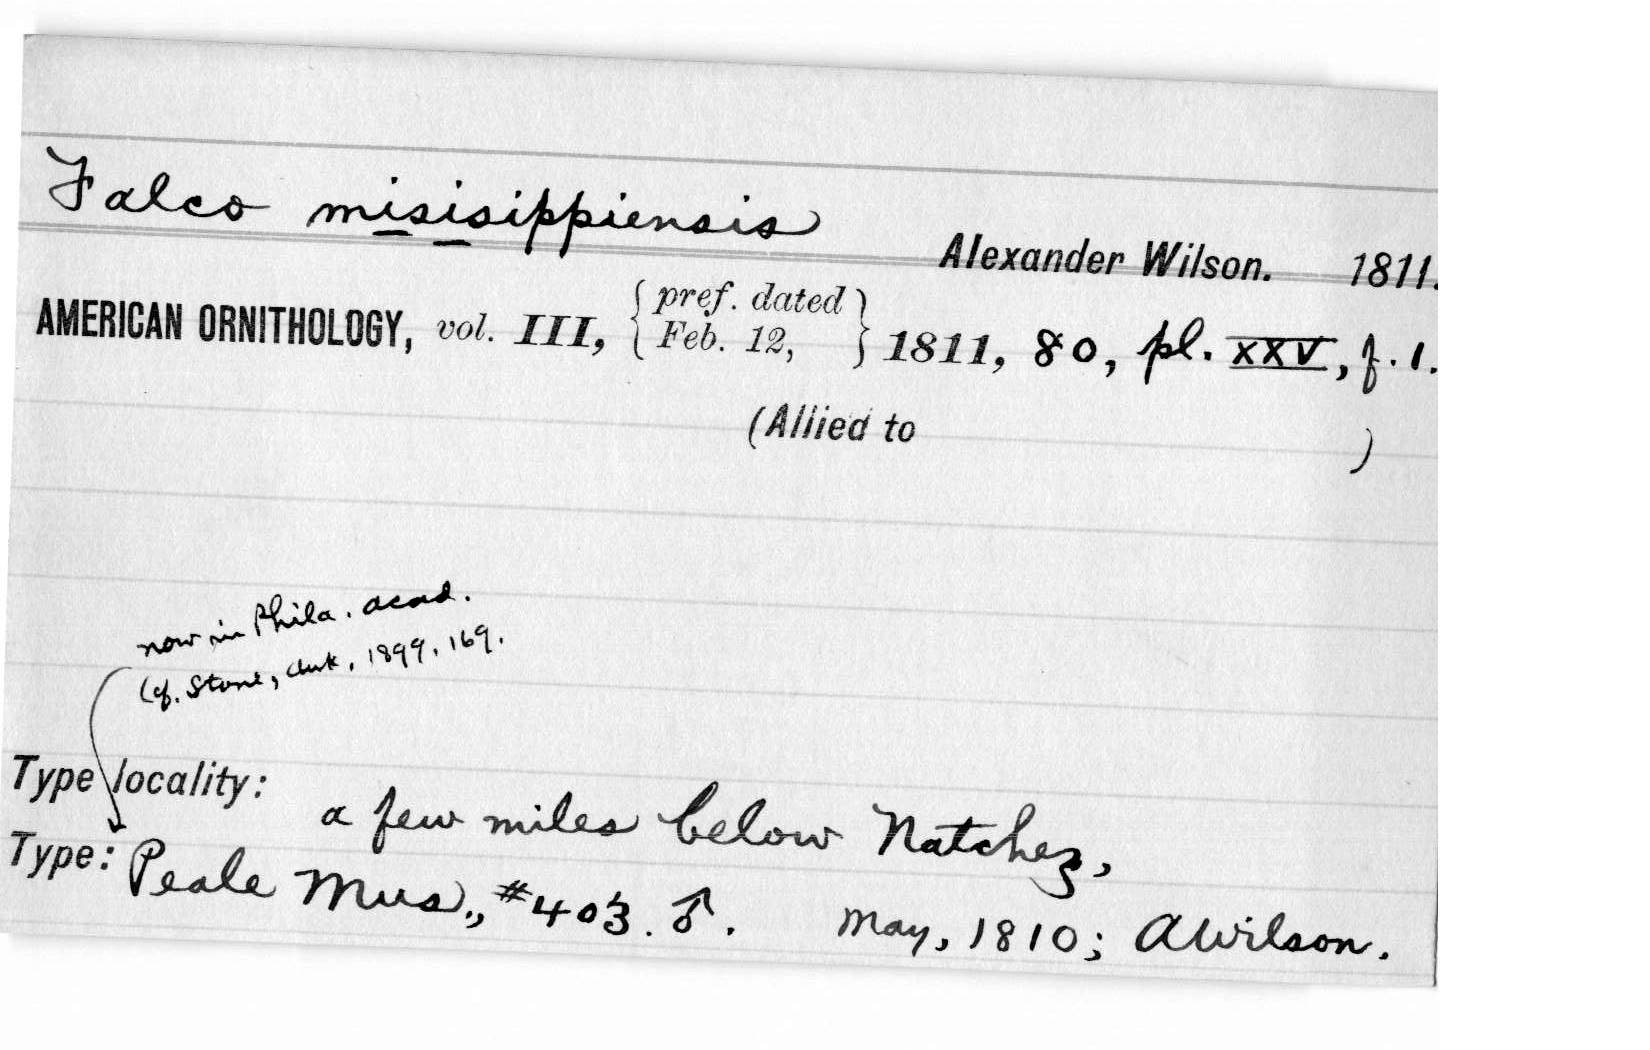 Falco misisippiensis
Alexander Wilson. 1811.
AMERICAN ORNITHOLOGY, vol. III, { pref. dated Feb. 12, } 1811, 80, pl. XXV, f. 1.
(Allied to )
now in Phila. acad.
(cf. Stone, Auk, 1899, 169.
Type locality: a few miles below Natchez,
Type: Peale Mus., #403. ♂. May, 1810; AWilson.